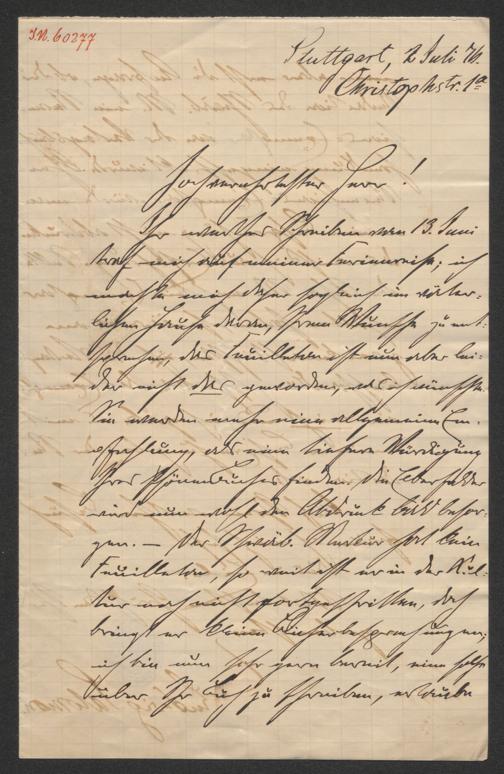 I.N. 60277
Stuttgart, 2 Juli 76.
Christophstr. 1a
Hochverehrtester Herr!
Ihr werthes Schreiben vom 13. Juni
traf mich auf meiner Ferienreise; ich
machte mich daher sogleich im väter-
lichen Hause daran, Ihrem Wunsche zu ent-
sprechen, das Feuilleton ist nun aber lei-
der nicht das geworden, was ich wünschte.
Sie werden mehr eine allgemeine Em-
pfehlung, als eine tiefere Würdigung
Ihres schönen Buches finden. Die Elberfelder
wird nun wohl den Abdruck bald besor-
gen. — Der Schwäb. Merkur hat kein
Feuilleton, so weit ist er in der Kul-
tur noch nicht fortgeschritten, doch
bringt er kleine Bücherbesprechungen;
ich bin nun sehr gern bereit, eine solche
über Ihr Buch zu schreiben, erlaube